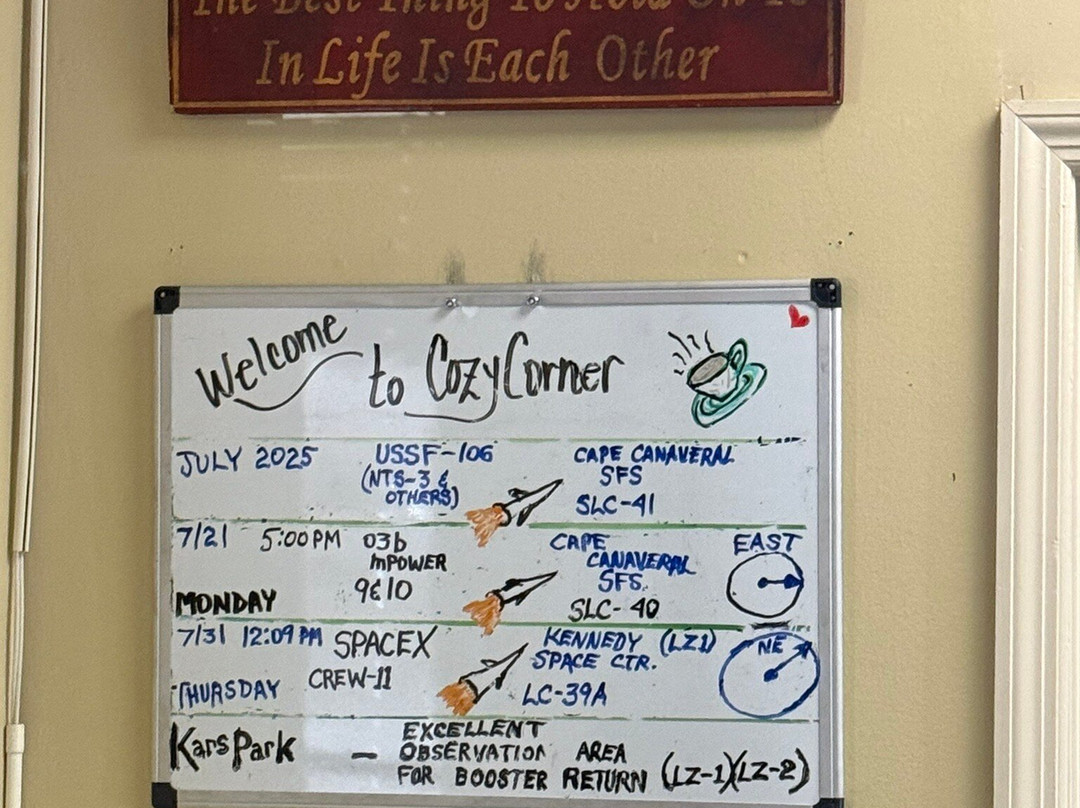 The Best Thing To Hold On To
In Life Is Each Other
Welcome to Cozy Corner
JULY 2025 USSF-106 CAPE CANAVERAL
(NTS-3 & SFS
OTHERS) SLC-41
7/21 5:00PM 03b CAPE EAST
mPOWER CANAVERAL
MONDAY 9&10 SFS
SLC-40
7/31 12:09PM SPACEX KENNEDY (LZ1) NE
SPACE CTR.
THURSDAY CREW-11 LC-39A
Kars Park - EXCELLENT
OBSERVATION AREA
FOR BOOSTER RETURN (LZ-1)(LZ-2)